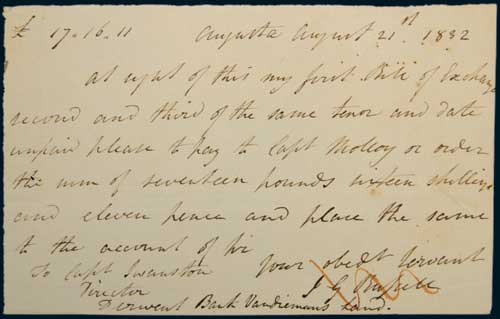 £ 17.16.11 Augusta August 21st. 1832
At sight of this my first Bill of Exchange
second and third of the same tenor and date
unpaid please to pay to Capt Molloy or order
the sum of seventeen pounds sixteen shillings
and eleven pence and place the same
to the account of Sir
your obedt Servant
To Capt Swanston J G
Director
Derwent Bank Vandiemans Land.